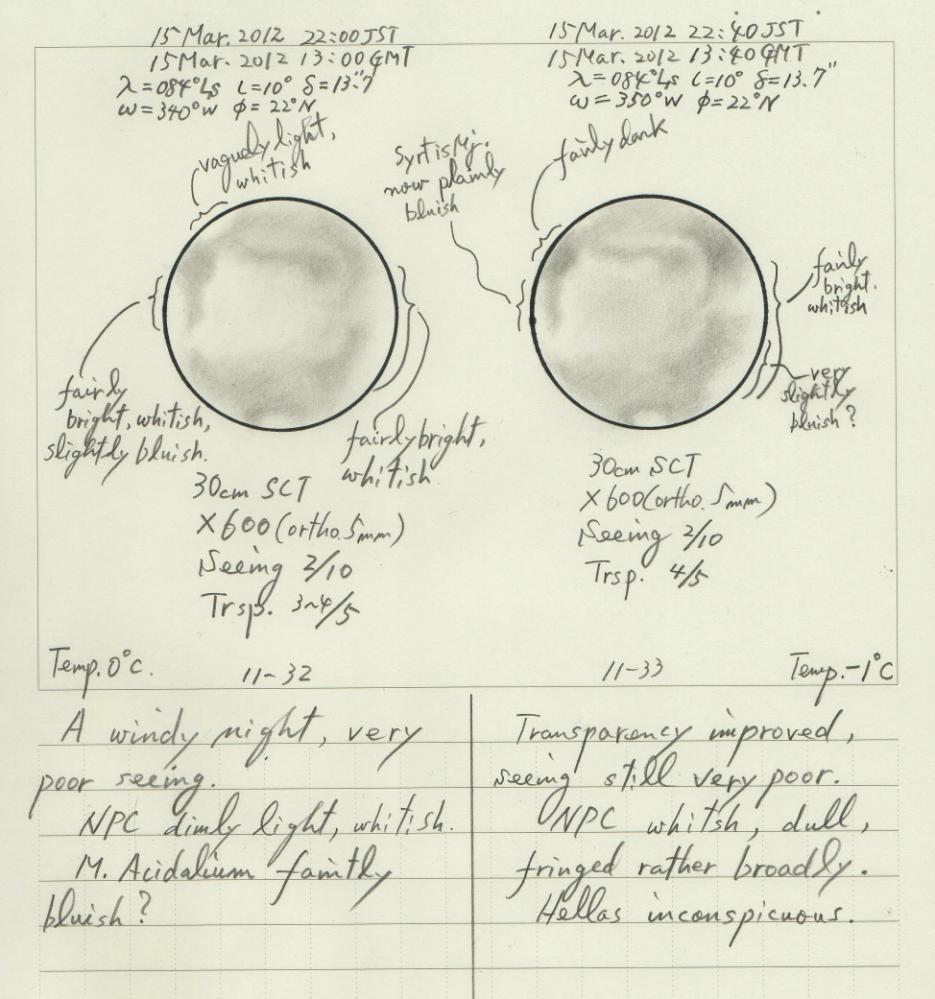 15 Mar. 2012 22:00 JST
15 Mar. 2012 13:00 GMT
λ=084°Ls ι=10° δ=13."7
ω=340°W φ=22°N
vaguely light,
whitish
fairly
bright, whitish,
slightly bluish.
fairly bright,
whitish
30cm SCT
×600 (ortho. 5mm)
Seeing 2/10
Trsp. 3~4/5
Temp. 0°C.
11-32
15 Mar. 2012 22:40 JST
15 Mar. 2012 13:40 GMT
λ=084°Ls ι=10° δ=13.7"
ω=350°W φ=22°N
Syrtis Mj.
now plainly
bluish
fairly dark
fairly
bright.
whitish
very
slightly
bluish?
30cm SCT
×600 (ortho. 5mm)
Seeing 2/10
Trsp. 4/5
11-33
Temp. -1°C
A windy night, very
poor seeing.
NPC dimly light, whitish.
M. Acidalium faintly
bluish?
Transparency improved,
seeing still very poor.
NPC whitsh, dull,
fringed rather broadly.
Hellas inconspicuous.